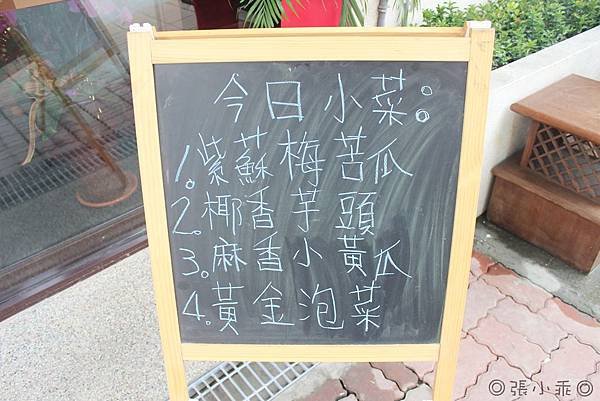 今日小菜:
1.紫蘇梅苦瓜
2.椰香芋頭
3.麻香小黃瓜
4.黃金泡菜
◎張小乖◎